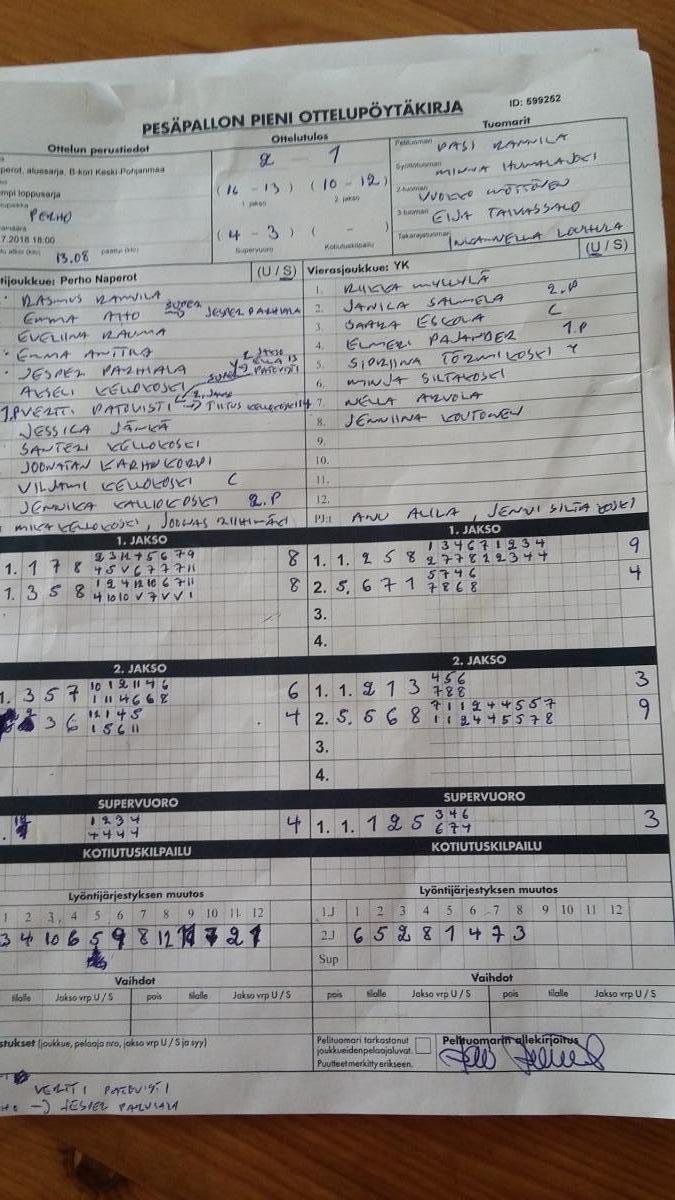 PESÄPALLON PIENI OTTELUPÖYTÄKIRJA
ID: 599252
Ottelun perustiedot
Ottelutulos
Tuomarit
2 - 1
Pelituomari PASI RANNILA
perot, aluesarja, B-kori Keski-Pohjanmaa
(16 - 13) (10 - 12)
Syöttötuomari MINNA HUMALAJOKI
1. jakso 2. jakso
mpi loppusarja
2-tuomari VUOKKO MÖTTÖNEN
PERHO
3-tuomari EIJA TAIVASSALO
7.2018 18:00
(4 - 3) ( - )
Takarajatuomari
13.08 päättyi (klo)
Supervuoro Kotiutuskilpailu
tijoukkue: Perho Naperot (U / S)
Vierasjoukkue: YK (U / S)
RASMUS RANNILA
EMMA AHO SUPER → JESPER PARHIALA
EVELIINA RAUMA
EMMA ANTTILA
JESPER PARHIALA
AKSELI KELLOKOSKI
1.P VERTTI PATOVISTI 2. JAKSO → TIITUS KELLOKOSKI 14
JESSICA JÄNKÄ
SANTERI KELLOKOSKI
JOONATAN KARHUKORPI
VILJAMI KELLOKOSKI C
JENNIKA KALLIOKOSKI 2.P
MIKA KELLOKOSKI, JOONAS RIIHIMÄKI
1. RIIKKA MYLLYLÄ
2. JANICA SALMELA 2.P
3. SAARA ESKOLA C
4. ELMERI PAJANDER 1.P
5. TORMIKOSKI
6. MINJA SILTAKOSKI
7. NELLA ARVOLA
8. JENNIINA KOUTONEN
9.
10.
11.
12.
PJ:t ANU ALILA, JENNI SILTAKOSKI
1. JAKSO
1. JAKSO
1. 1 7 8
8
1. 1. 2 5 8 1 3 4 6 7 1 2 3 4
2 7 7 8 1 2 3 4 4
9
1. 3 5 8 1 2 4 12 10 6 7 11
4 10 10 V 7 V V 1
8
2. 5. 6 7 1 5 7 4 6
7 8 6 8
4
3.
4.
2. JAKSO
2. JAKSO
1. 3 5 7 10 1 2 11 4 6
1 11 4 6 6 8
6
1. 1. 2 1 3 4 5 6
7 8 8
3
3 6 12 1 4 5
1 5 6 11
4
2. 5. 5 6 8 7 1 1 2 4 4 5 5 7
1 1 2 4 4 5 5 7 8
9
3.
4.
SUPERVUORO
SUPERVUORO
1 2 3 4
4 4 4 4
4
1. 1. 1 2 5 3 4 6
6 7 7
3
KOTIUTUSKILPAILU
KOTIUTUSKILPAILU
Lyöntijärjestyksen muutos
Lyöntijärjestyksen muutos
1 2 3 4 5 6 7 8 9 10 11 12
1.J 1 2 3 4 5 6 7 8 9 10 11 12
3 4 10 6 5 9 8 12 11 7 2 1
2.J 6 5 2 8 1 4 7 3
Sup
Vaihdot
Vaihdot
tilalle Jakso vrp U / S pois tilalle Jakso vrp U / S
pois tilalle Jakso vrp U / S pois tilalle Jakso vrp U / S
stukset (joukkue, pelaaja nro, jakso vrp U / S ja syy)
Pelituomari tarkastanut
joukkueiden pelaajaluvat.
Puutteet merkitty erikseen.
Pelituomarin allekirjoitus
VERTTI PATOVISTI
→ JESPER PARHIALA